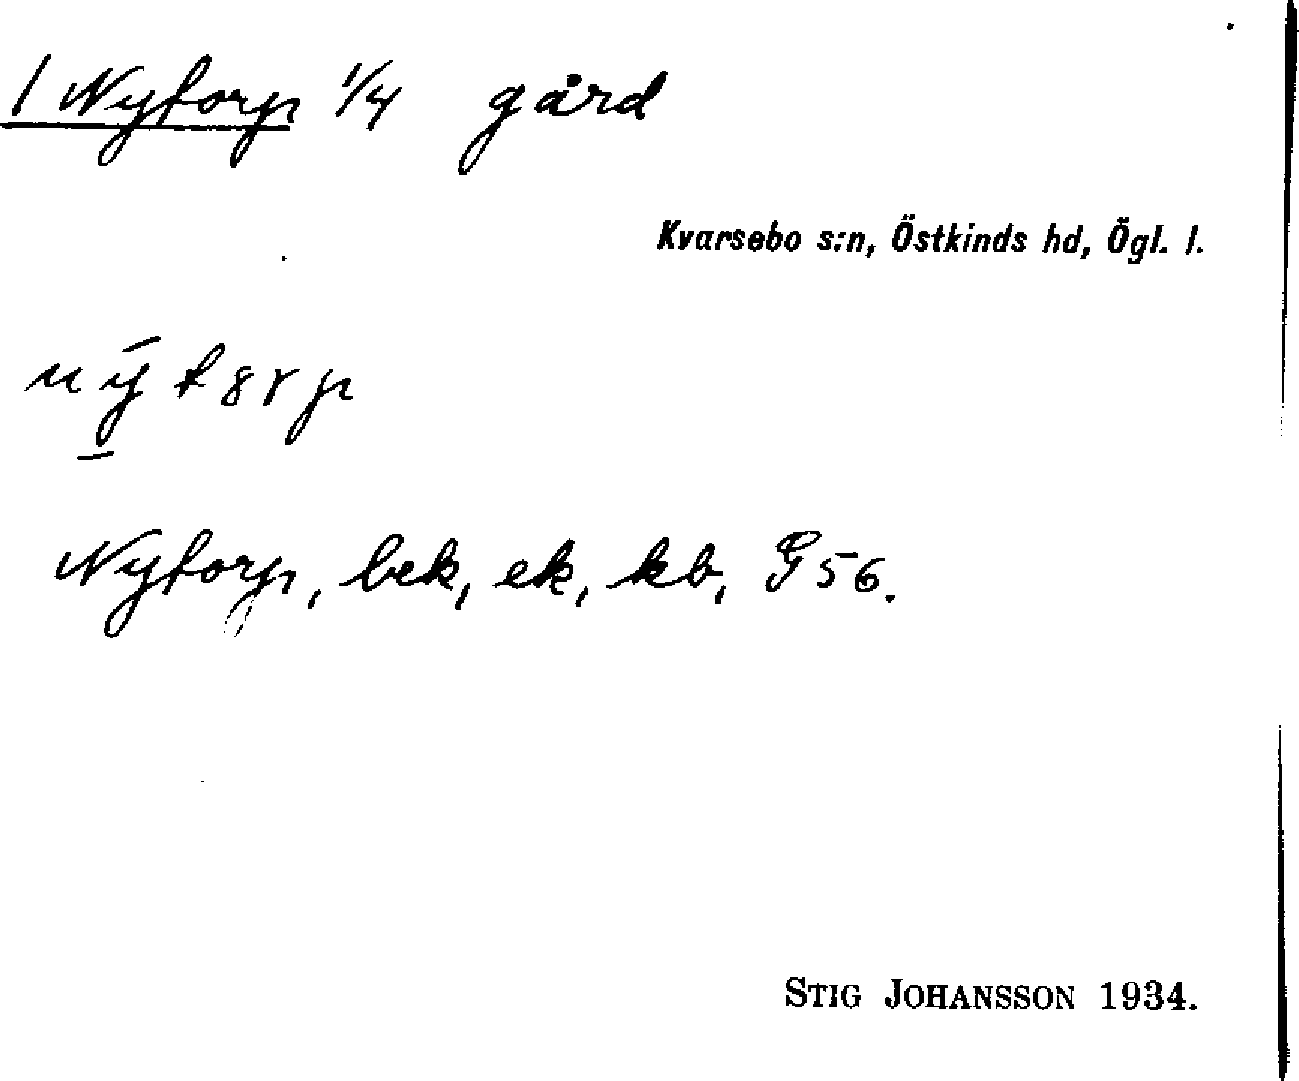 1 Nytorp 1/4 gård
Kvarsebo s:n, Östkinds hd, Ögl. l.
nýt8rp
Nytorp, bek, ek, kb, G 56.
STIG JOHANSSON 1934.